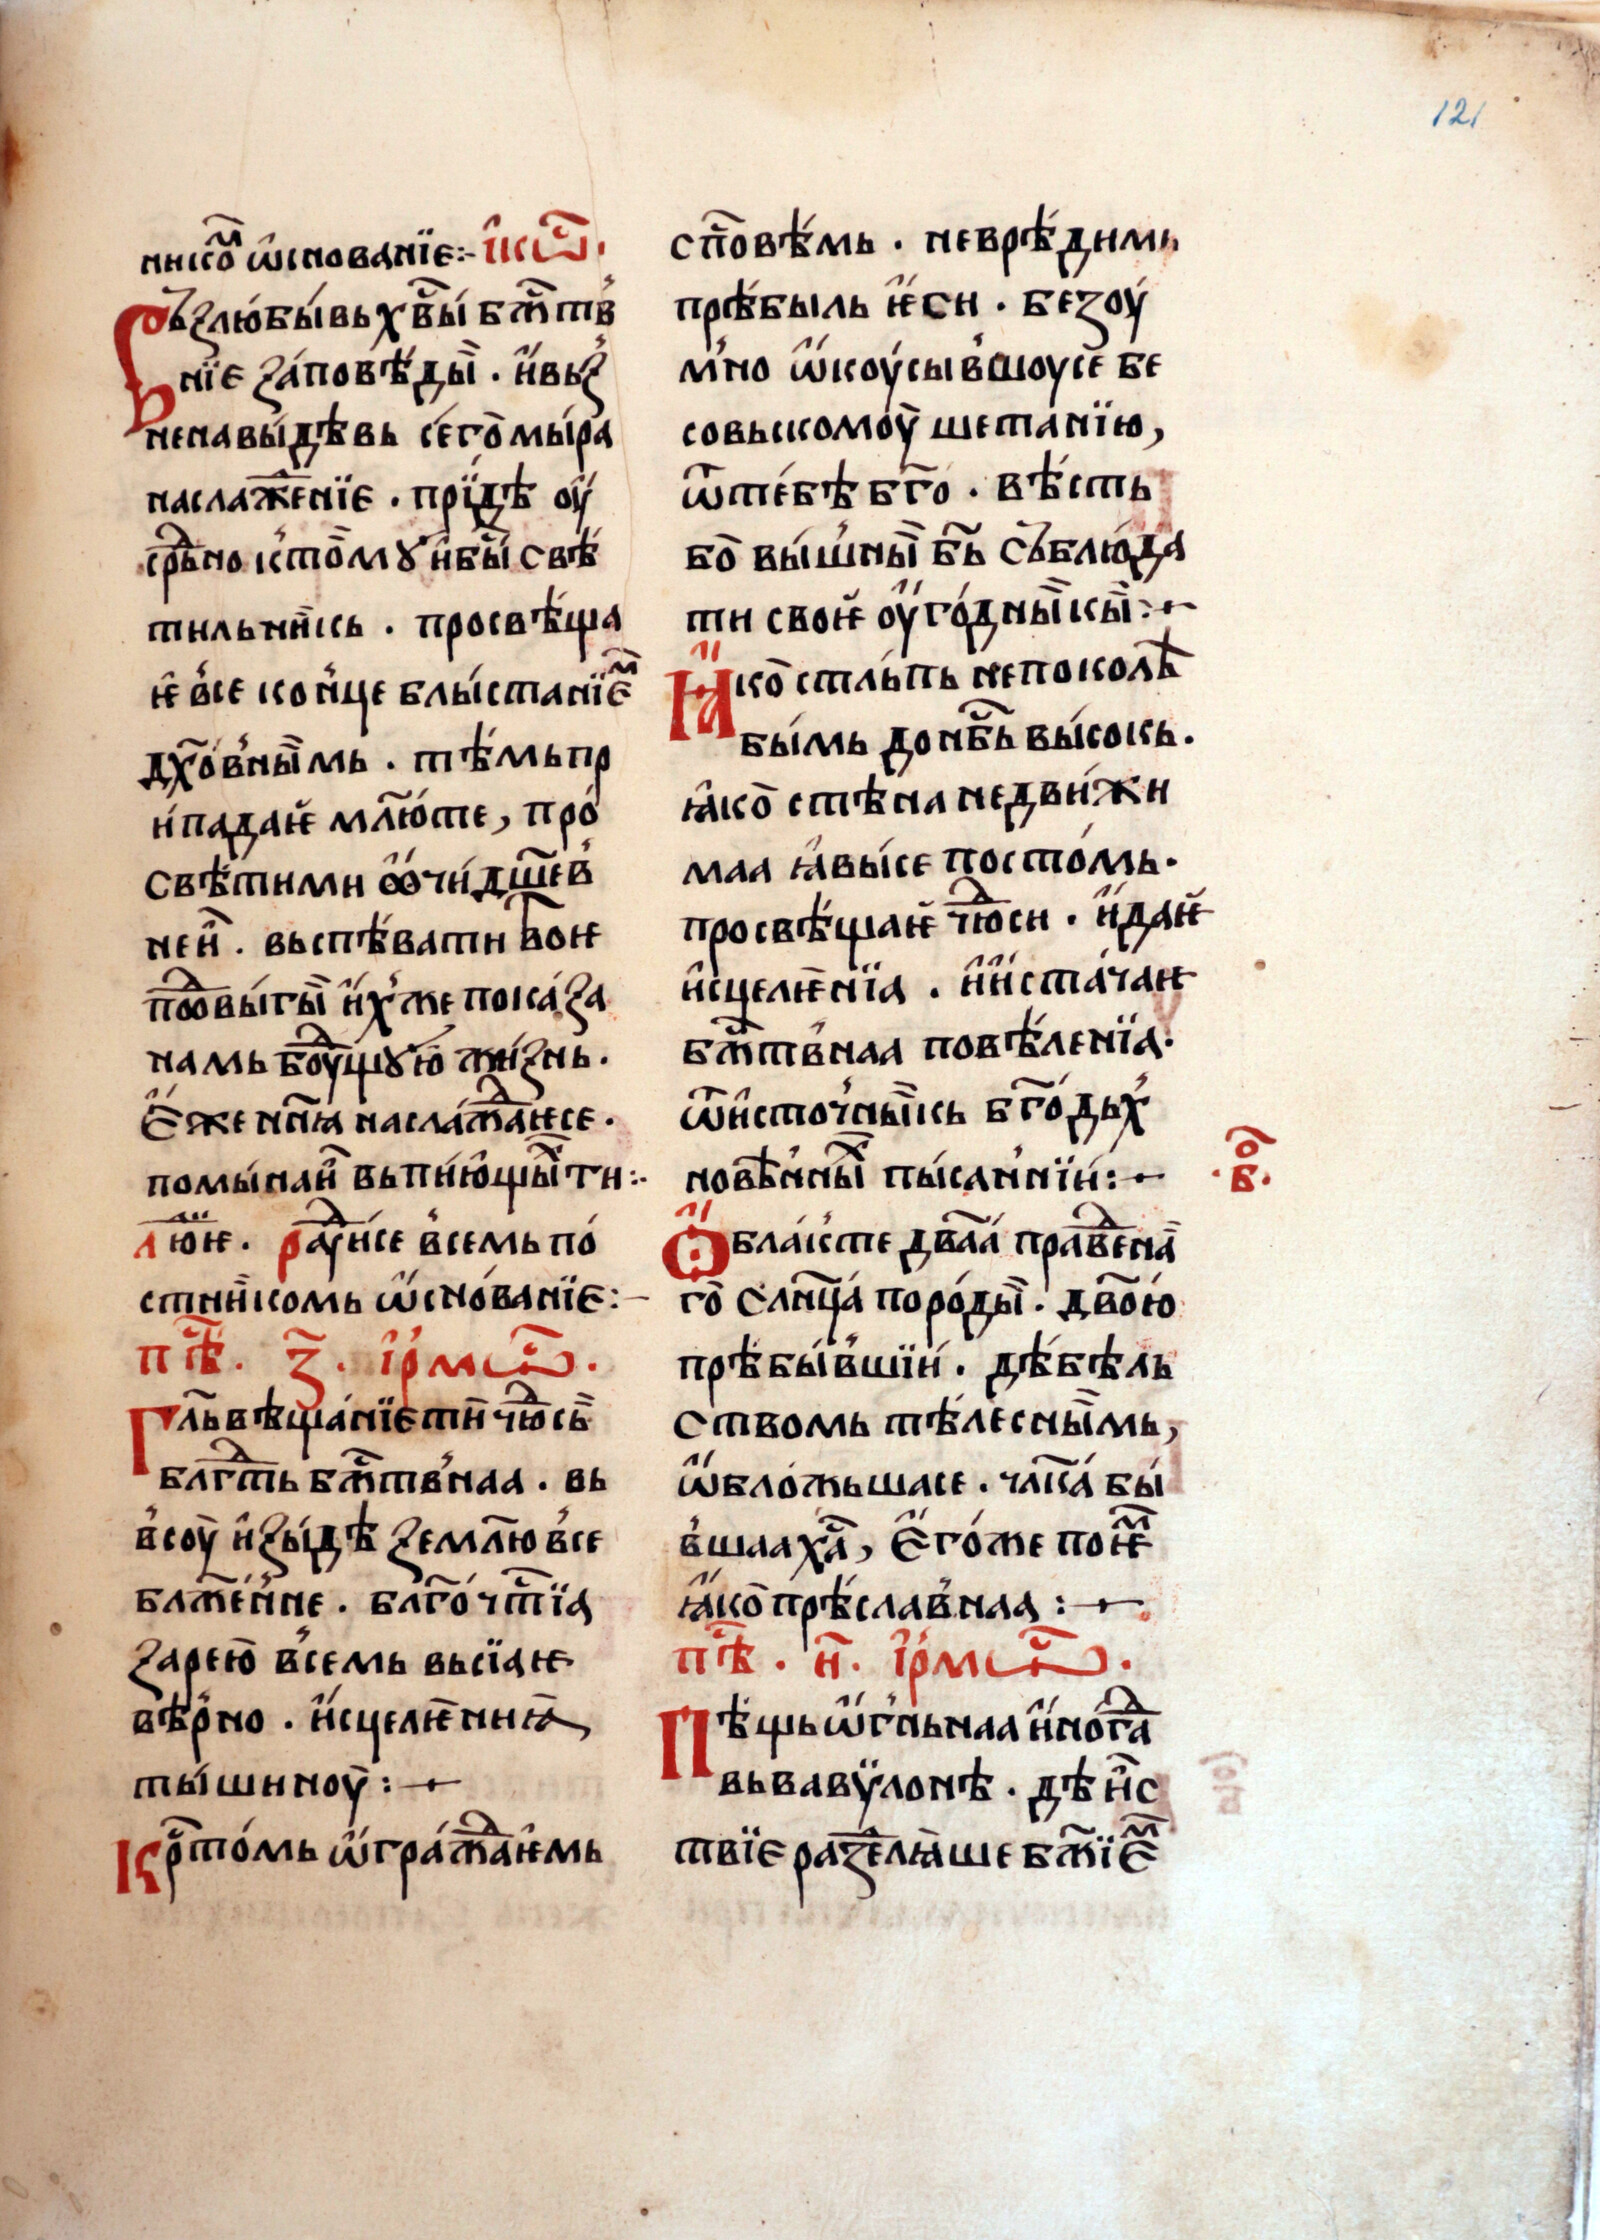 121
никѡ̑ ѡ҆снованїе :- і҆кѡ҃с.
Възлю́бы́вь х҃вы́ бж҃ств
нїе за́повѣ́ды̏ . и҆́вьз
ненавы́дѣвь се́го̀ мы́ра
наслаж҃енїе . прї́идѣ оу҆́
срⷣьно к̾томꙋ̀ и҆ бы̏ свѣ́
тильни̏кь . просвѣ́ща
ѥ в̾се кон̾це блы́станїе҆ⷨ
дх҃о́в̾ны̏мь . тѣ́мьпр
и́падаѥ мл҃ю́те, про́
свѣ́тими ѻ҆́чи́ дш҃ев̾
неи̏ . вьспѣ́вати твоѥ
под̾вы́гы̏ и҆́х̾же пока́за
намь боу́дꙋщꙋю̀ жи́знь .
Е҆́же нн҃ꙗ насла́ждаѥсе .
помы́наи̏ вьпию́щыⷯ ти :·
лю҃ѥ . ра́дꙋисе в̾семь по́
стни̏комь ѡ҆́сно́ванїе :-
пѣ҃с . з҃ . і҆рмѡ҃с .
Гл҃ь вѣща́нїе ти̏ чю́дⷭ҇сы̏
блг҃дть бж҃ств̾наа . вь
в̾соу̀ и҆зы́дѣ земл҃ю в̾се
блж҃е́н̾не . блг҃о́чт҃їа
зарею̀ в̾семь вьсїаѥ
вѣ́рно . и҆́сцелѥ̏ниꙗ̀
ты́шиноу̀ : —
Крⷭ҇то́мь ѡ҆́гра́ждаѥ̏мь
сп҃овѣ́мь . неврѣ́димь
прѣ́быль ѥ҆́си . безоу́
м̾но ѡ҆́коу́сы́в̾шоусе̏ бе
совьскомоу̀ шетанїю,
ѿте́бѣ бг҃о . вѣ́сть
бо̀ вы́ш̾ны̏ бг҃ь съблю́да
ти своѥ̏ оу҆́го́дны̏кы̏ : —
Ꙗ҆́ко̀ стль́пь непоколѣ̏
бы́мь до нб҃ь вы́сокь.
ꙗ҆ко̀ стѣна недви́жи
маа ꙗ҆вы́се посто́мь.
просвѣ́щаѥ̏ чю́дⷭ҇си . и҆́даѥ̏
и҆сцелѥ̏нїа . и҆́и҆ста́чаѥ
бж҃ств̾наа повѣ́ленїа.
ѿи҆сточ̾ны̏кь бг҃о́дьх̾
новѣ̏н̾ны̏х пы́сан̾нїи́ : —
.в҃.
Ѻ҆бла́к̾те два҃а́ пра́вⷣена̏
го̀ сл҃нца́ поро́ды̏ . дв҃о́ю
прѣ́бы́в̾шїи́ . дѣ́бѣль
ствомь тѣ́лесны̏мь,
ѡ҆́бло́жьшасе . чл҃ка́ бы́
в̾шаа х҃а, Е҆́го́же поѥ̏ⷨ
ꙗ҆́ко̀ прѣ́слав̾наа : —
пѣ҃с . и҃ . і҆рмѡ҃с .
Пѣ́щь ѡ҆́гн̾ьнаа и҆́но́гⷣа
вьвавѷлонѣ . дѣ и҆̏с
твїе ра́здⷣелꙗ̀ше бж҃їе҆ⷨ